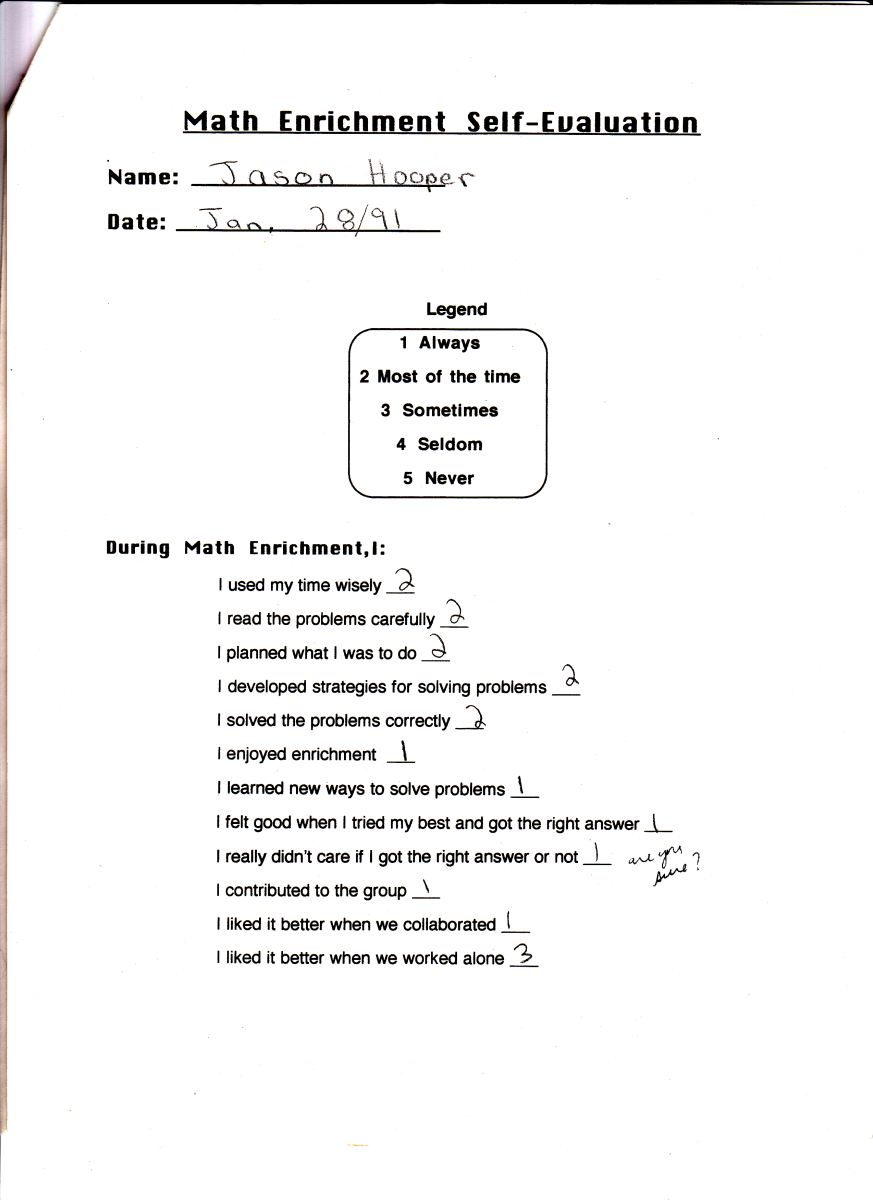 Math Enrichment Self-Evaluation
Name: Jason Hooper
Date: Jan. 28/91
Legend
1 Always
2 Most of the time
3 Sometimes
4 Seldom
5 Never
During Math Enrichment,I:
I used my time wisely 2
I read the problems carefully 2
I planned what I was to do 2
I developed strategies for solving problems 2
I solved the problems correctly 2
I enjoyed enrichment 1
I learned new ways to solve problems 1
I felt good when I tried my best and got the right answer 1
I really didn't care if I got the right answer or not 1 are you
sure?
I contributed to the group 1
I liked it better when we collaborated 1
I liked it better when we worked alone 3